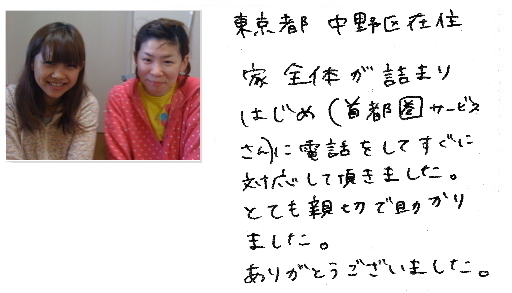 東京都 中野区在住
家全体が詰まり
はじめ(首都圏サービス
さん)に電話をしてすぐに
対応して頂きました。
とても親切で助かり
ました。
ありがとうございました。